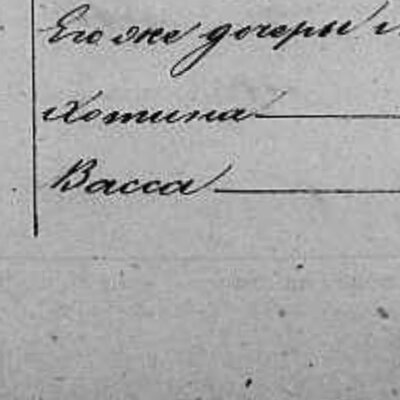 Его же дочери
Хотина
Васса